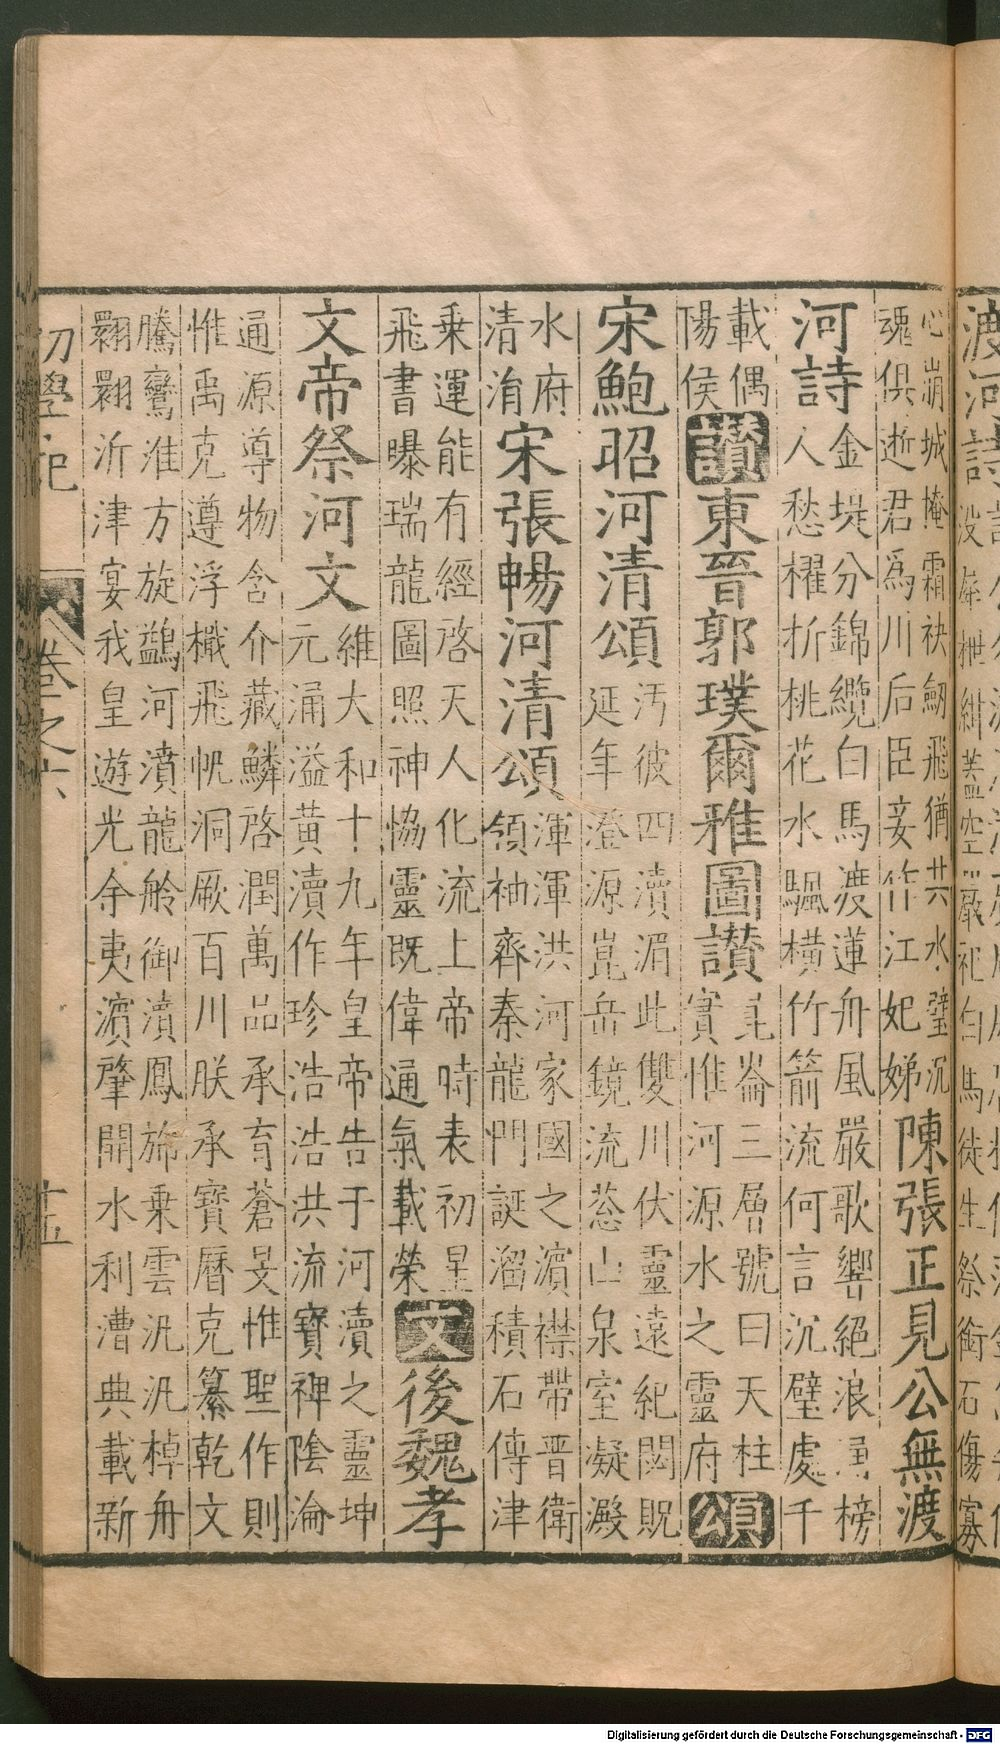 心崩城掩霜袂劒飛猶共水璧沉
魂俱逝君爲川后臣妾作江妃娣陳張正見公無渡
河詩金堤分錦纜白馬渡蓮舟風嚴歌響絕浪湧榜
人愁櫂折桃花水颿橫竹箭流何言沉璧處千
載偶
陽侯讚東晉郭璞爾雅圖讃崑崙三層號曰天柱
實惟河源水之靈府頌
宋鮑昭河清頌汚彼四瀆湄此雙川伏靈遠紀閟貺
延年澄源崑岳鏡流葱山泉室凝澱
水府
清洧宋張暢河清頌渾渾洪河家國之濵襟帶晋衛
領袖齊秦龍門誕溜積石傳津
乗運能有經啓天人化流上帝時表初星
飛書曝瑞龍圖照神恊靈旣偉通氣載榮文後魏孝
文帝祭河文維大和十九年皇帝告于河瀆之靈坤
元涌溢黃瀆作珍浩浩洪流實禆陰淪
通源導物含介藏鱗啓潤萬品承育蒼旻惟聖作則
惟禹克遵浮檝飛帆洞厥百川朕承寶曆克纂乾文
騰鸞淮方旋鷁河濆龍舲御瀆鳳旆乗雲汎汎棹舟
翾翾沂津宴我皇遊光余夷濵肇開水利漕典載新
初學記 卷之六 十五
Digitalisierung gefördert durch die Deutsche Forschungsgemeinschaft - DFG